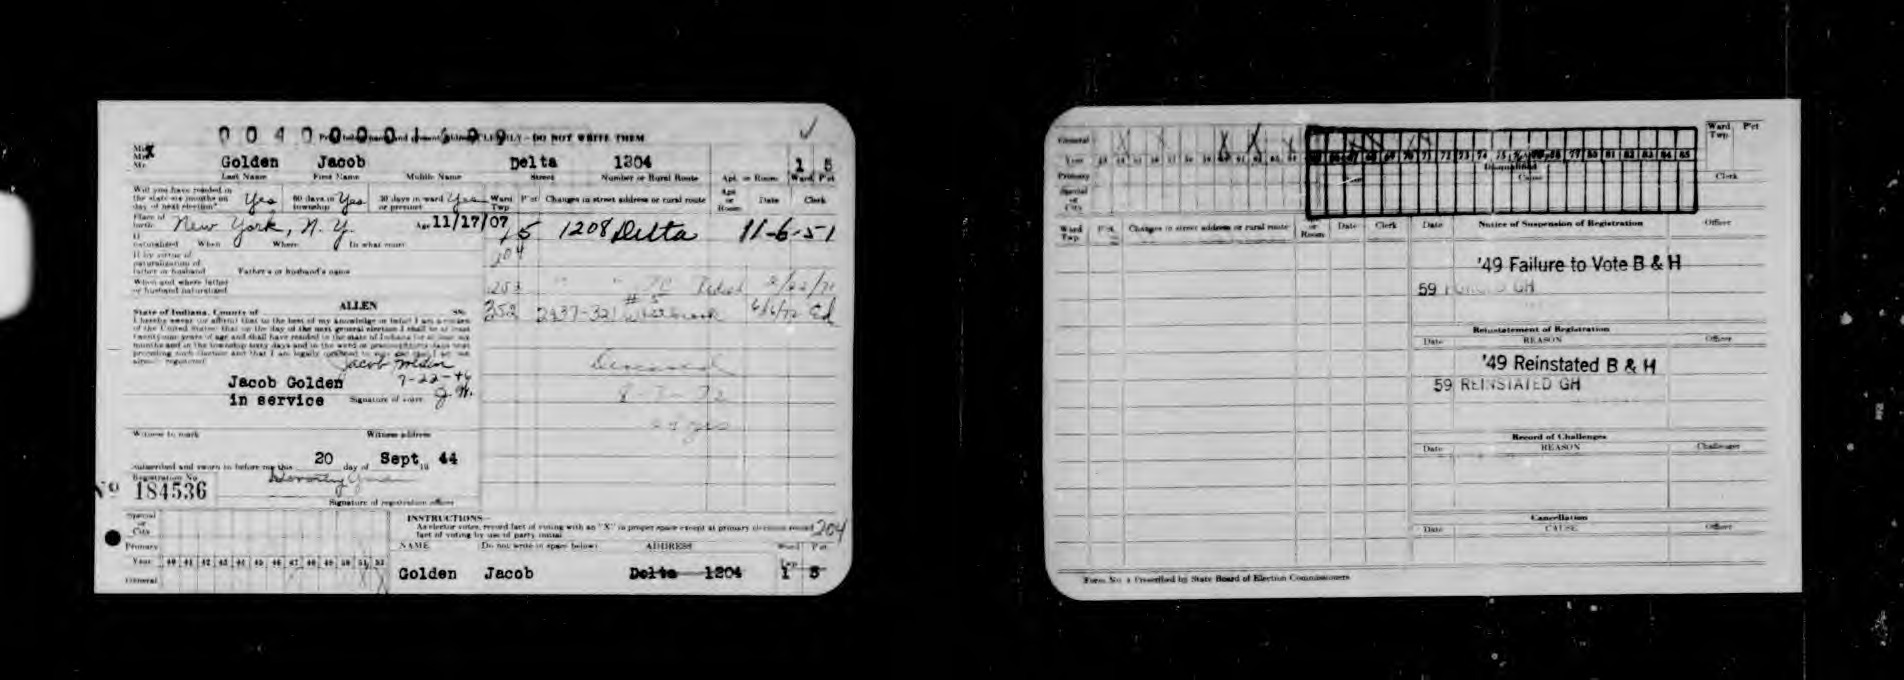 0040001599
PLAINLY - DO NOT WRITE THEM
Mr. X
Golden Jacob Delta 1204 1 5
Last Name First Name Middle Name Street Number or Rural Route Apt. or Room Ward P'ct
Will you have resided in the state six months on day of next election? Yes 60 days in township Yes 30 days in ward or precinct Yes
Ward Twp P'ct Changes in street address or rural route Apt. or Room Date Clerk
Place of birth New York, N.Y. Age 11/17/07
1 5 1208 Delta 11-6-51
204
If naturalized When Where In what court
If by virtue of naturalization of father or husband Father's or husband's name
When and where father or husband naturalized
253 " "
352 2437-321 Westbrook #5 6/6/72 Ed
ALLEN
State of Indiana, County of SS:
I hereby swear (or affirm) that to the best of my knowledge or belief I am a citizen
of the United States; that on the day of the next general election I shall be at least
twenty-one years of age and shall have resided in the state of Indiana for at least six
months and in the township sixty days and in the ward or precinct thirty days next
preceding such election and that I am legally
already registered.
Jacob Golden
7-22-46
Jacob Golden
in service
Signature of voter J.W.
Deceased
8-7-72
Witness to mark Witness address
Subscribed and sworn to before me this 20 day of Sept 19 44
Registration No.
No 184536
Dorothy
Signature of registration officer
Special or City
Primary
Year 40 41 42 43 44 45 46 47 48 49 50 51 52
General
INSTRUCTIONS—
As elector votes, record fact of voting with an "X" in proper space except at primary election record
fact of voting by use of party initial
204
NAME Do not write in space below) ADDRESS Ward P'ct
Twp
Golden Jacob Delta 1204 1 5
General X X X X
Year 53 54 55 56 57 58 59 60 61 62 63 64 65 66 67 68 69 70 71 72 73 74 75 76 77 78 79 80 81 82 83 84 85
Primary
Special or City
Disqualified
Cause
Ward Twp. P'ct
Clerk
Ward Twp P'ct. Changes in street address or rural route or Room Date Clerk
Date Notice of Suspension of Registration Officer
'49 Failure to Vote B & H
59 GH
Reinstatement of Registration
Date REASON Officer
'49 Reinstated B & H
59 REINSTATED GH
Record of Challenges
Date REASON Challenger
Cancellation
Date CAUSE Officer
Form No. 1 Prescribed by State Board of Election Commissioners